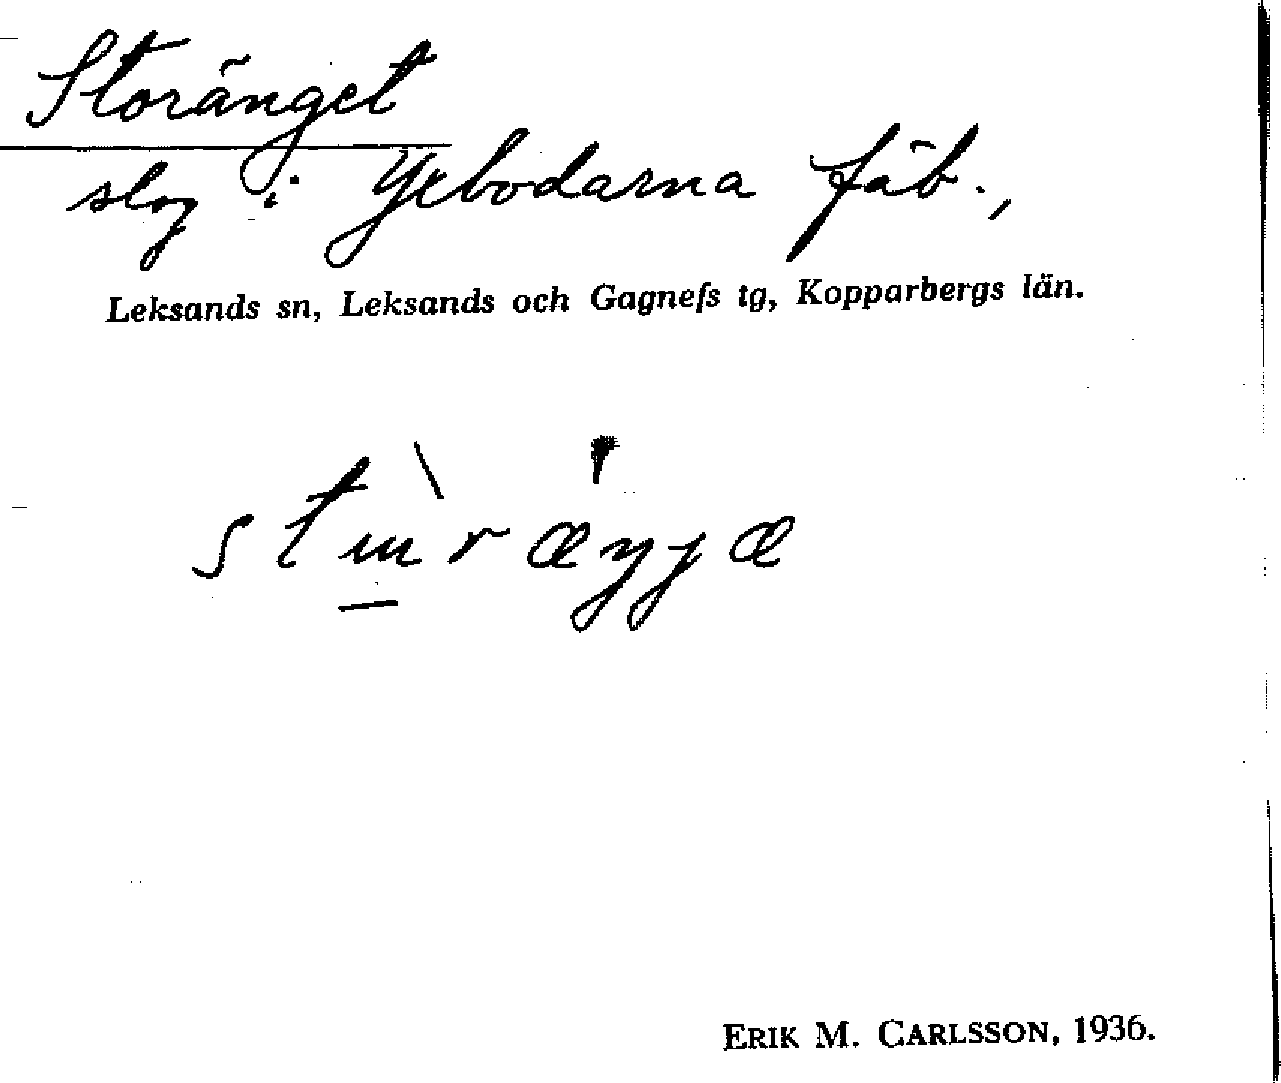 Storänget
slog i Yxbodarna fäb.,
Leksands sn, Leksands och Gagnefs tg, Kopparbergs län.
ERIK M. CARLSSON, 1936.